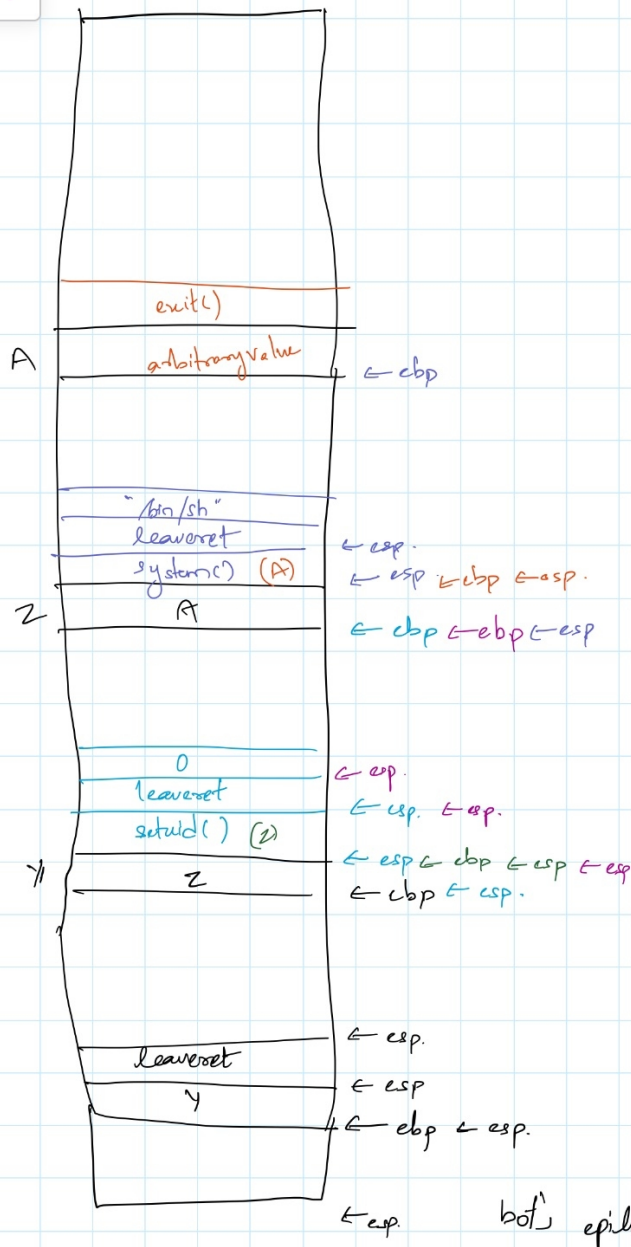 exit()
A arbitrary value
← ebp
"/bin/sh"
leaveret ← esp.
system() (A) ← esp ← ebp ← esp.
Z A ← ebp ← ebp ← esp
0 ← esp.
leaveret ← esp. ← esp.
setuid() (Z) ← esp ← ebp ← esp ← esp
Y Z ← ebp ← esp.
← esp.
leaveret ← esp
Y ← ebp ← esp.
← esp. bof's